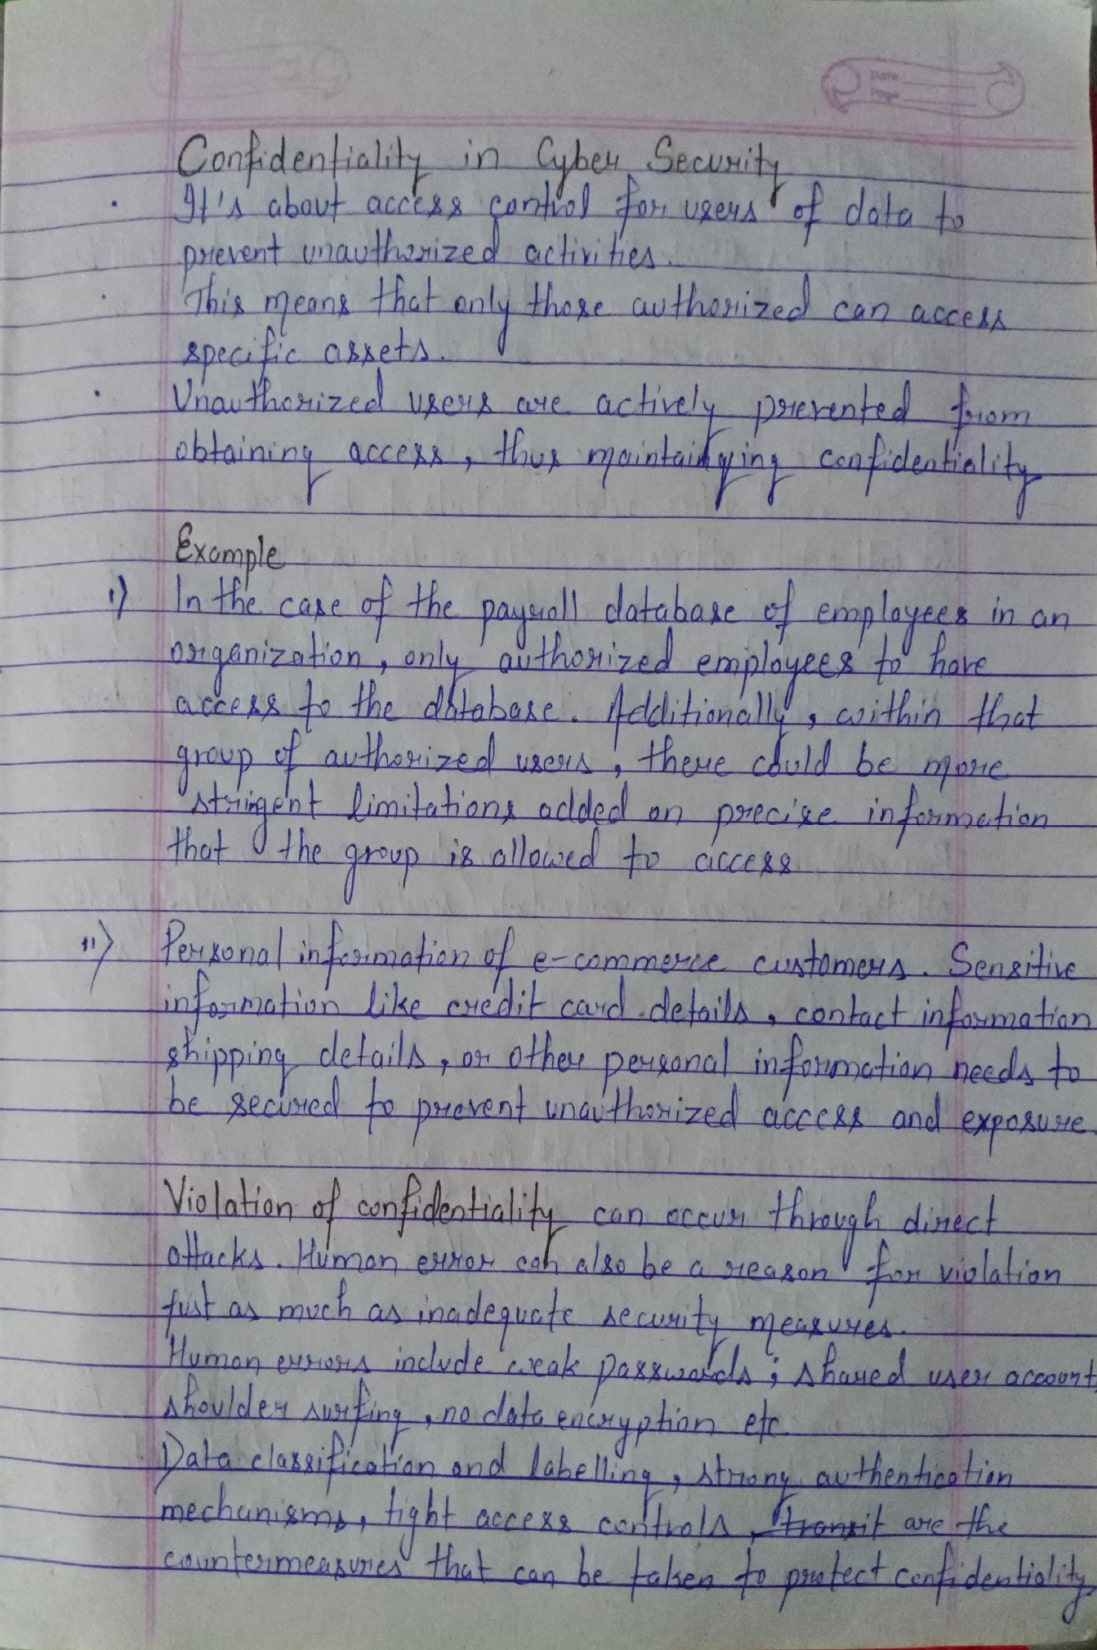 Date
Page
Confidentiality in Cyber Security
· It's about access control for users of data to
prevent unauthorized activities.
· This means that only those authorized can access
specific assets.
· Unauthorized users are actively prevented from
obtaining access, thus maintaining confidentiality
Example
i) In the case of the payroll database of employees in an
organization, only authorized employees to have
access to the database. Additionally, within that
group of authorized users, there could be more
stringent limitations added on precise information
that the group is allowed to access
ii) Personal information of e-commerce customers. Sensitive
information like credit card details, contact information
shipping details, or other personal information needs to
be secured to prevent unauthorized access and exposure.
Violation of confidentiality can occur through direct
attacks. Human error can also be a reason for violation
just as much as inadequate security measures.
Human errors include weak passwords; shared user account,
shoulder surfing, no data encryption etc.
Data classification and labelling, strong authentication
mechanisms, tight access controls, transit are the
countermeasures that can be taken to protect confidentiality